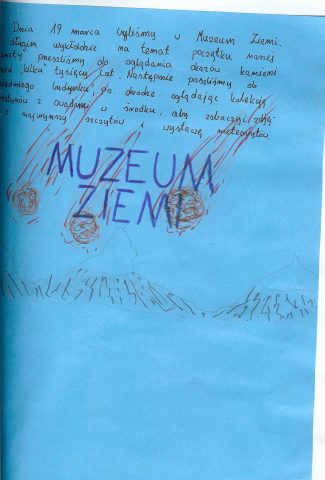 Dnia 19 marca byliśmy w Muzeum Ziemi.
długim wykładzie na temat początku naszej
przeszliśmy do oglądania okazów kamieni
kilku tysięcy lat. Następnie poszliśmy do
budynku, po drodze oglądając kolekcję
z owadami w środku, aby zobaczyć
z najwyższy szczytów i wystawę meteorytów
MUZEUM
ZIEMI